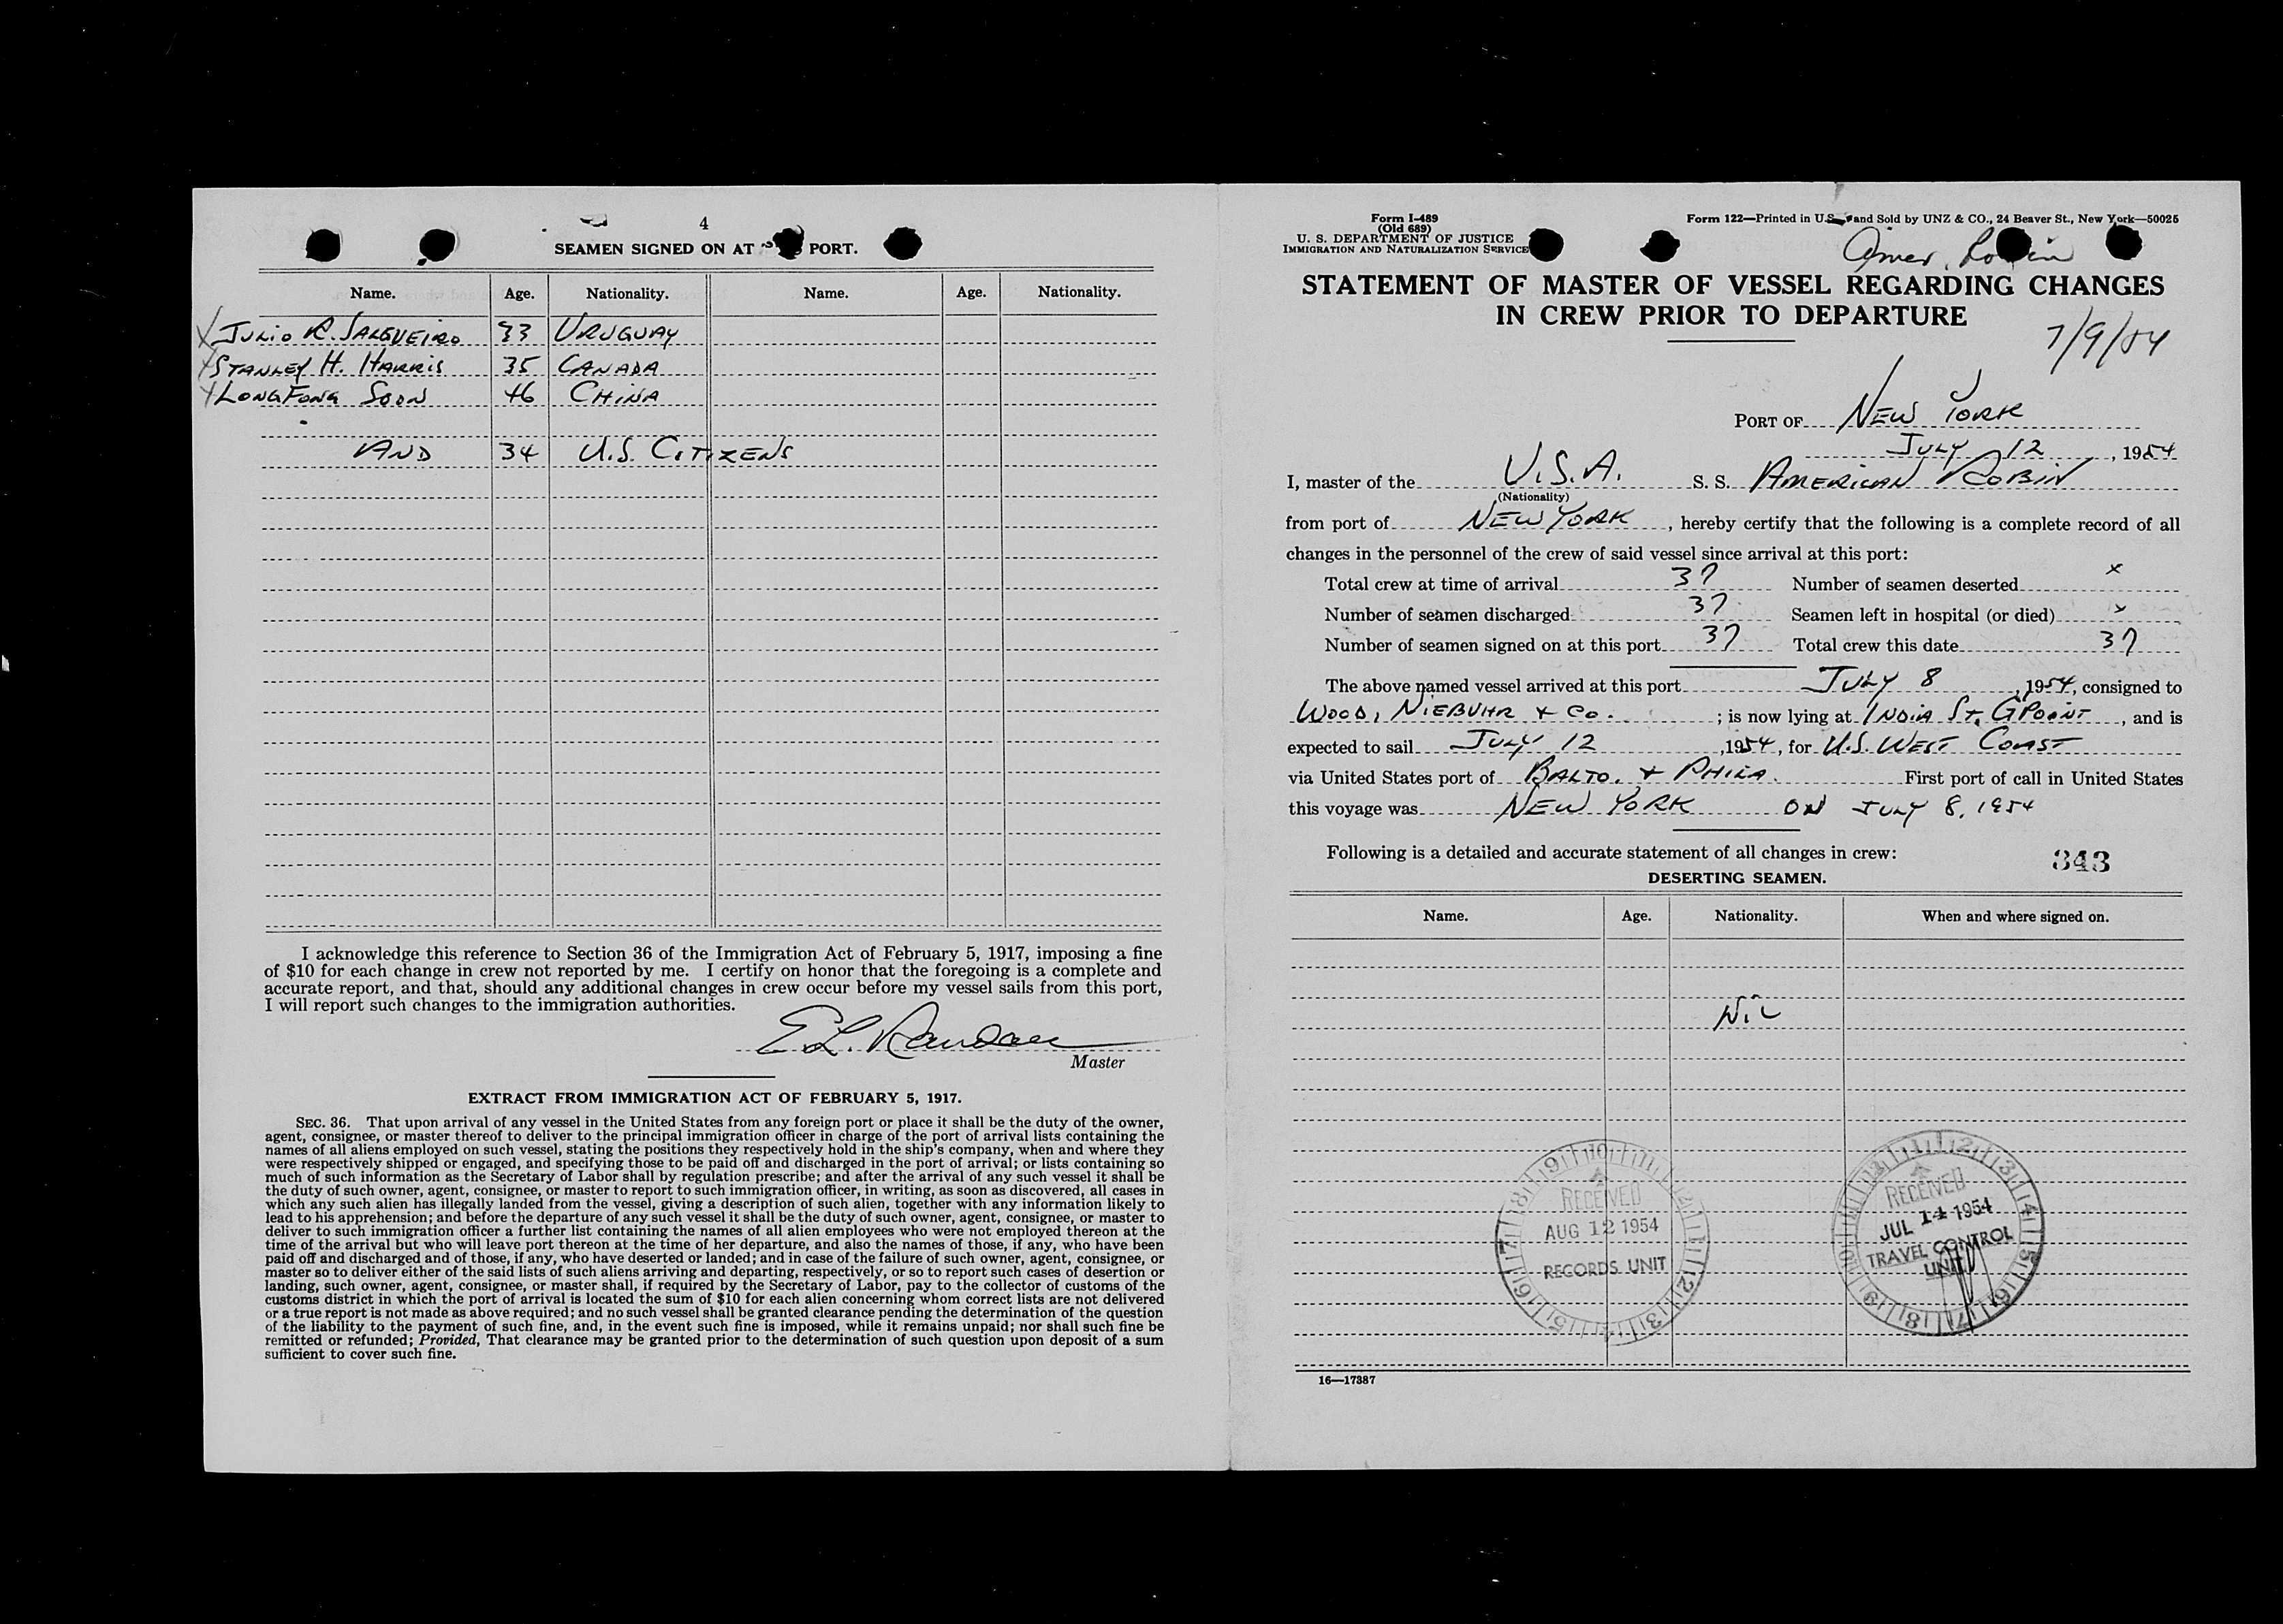 4
SEAMEN SIGNED ON AT PORT.
Name. Age. Nationality. Name. Age. Nationality.
JULIO R. SALGUEIRO 33 URUGUAY
STANLEY H. HARRIS 35 CANADA
LONG FONG SOON 46 CHINA
AND 34 U.S. CITIZENS
I acknowledge this reference to Section 36 of the Immigration Act of February 5, 1917, imposing a fine
of $10 for each change in crew not reported by me. I certify on honor that the foregoing is a complete and
accurate report, and that, should any additional changes in crew occur before my vessel sails from this port,
I will report such changes to the immigration authorities.
E.L.
Master
EXTRACT FROM IMMIGRATION ACT OF FEBRUARY 5, 1917.
SEC. 36. That upon arrival of any vessel in the United States from any foreign port or place it shall be the duty of the owner,
agent, consignee, or master thereof to deliver to the principal immigration officer in charge of the port of arrival lists containing the
names of all aliens employed on such vessel, stating the positions they respectively hold in the ship's company, when and where they
were respectively shipped or engaged, and specifying those to be paid off and discharged in the port of arrival; or lists containing so
much of such information as the Secretary of Labor shall by regulation prescribe; and after the arrival of any such vessel it shall be
the duty of such owner, agent, consignee, or master to report to such immigration officer, in writing, as soon as discovered, all cases in
which any such alien has illegally landed from the vessel, giving a description of such alien, together with any information likely to
lead to his apprehension; and before the departure of any such vessel it shall be the duty of such owner, agent, consignee, or master to
deliver to such immigration officer a further list containing the names of all alien employees who were not employed thereon at the
time of the arrival but who will leave port thereon at the time of her departure, and also the names of those, if any, who have been
paid off and discharged and of those, if any, who have deserted or landed; and in case of the failure of such owner, agent, consignee, or
master so to deliver either of the said lists of such aliens arriving and departing, respectively, or so to report such cases of desertion or
landing, such owner, agent, consignee, or master shall, if required by the Secretary of Labor, pay to the collector of customs of the
customs district in which the port of arrival is located the sum of $10 for each alien concerning whom correct lists are not delivered
or a true report is not made as above required; and no such vessel shall be granted clearance pending the determination of the question
of the liability to the payment of such fine, and, in the event such fine is imposed, while it remains unpaid; nor shall such fine be
remitted or refunded; Provided, That clearance may be granted prior to the determination of such question upon deposit of a sum
sufficient to cover such fine.
Form I-489
(Old 689)
U. S. DEPARTMENT OF JUSTICE
IMMIGRATION AND NATURALIZATION SERVICE
Form 122—Printed in U.S. and Sold by UNZ & CO., 24 Beaver St., New York—50025
Amer. Robin
STATEMENT OF MASTER OF VESSEL REGARDING CHANGES
IN CREW PRIOR TO DEPARTURE
7/9/54
PORT OF NEW YORK
JULY 12, 1954
I, master of the U.S.A. S. S. AMERICAN ROBIN
(Nationality)
from port of NEW YORK, hereby certify that the following is a complete record of all
changes in the personnel of the crew of said vessel since arrival at this port:
Total crew at time of arrival 37 Number of seamen deserted x
Number of seamen discharged 37 Seamen left in hospital (or died) x
Number of seamen signed on at this port 37 Total crew this date 37
The above named vessel arrived at this port JULY 8, 1954, consigned to
WOOD, NIEBUHR & CO. ; is now lying at INDIA ST. GPOINT, and is
expected to sail JULY 12, 1954, for U.S. WEST COAST
via United States port of BALTO. & PHILA. First port of call in United States
this voyage was NEW YORK ON JULY 8, 1954
Following is a detailed and accurate statement of all changes in crew:
343
DESERTING SEAMEN.
Name. Age. Nationality. When and where signed on.
NIL
RECEIVED
AUG 12 1954
RECORDS UNIT
RECEIVED
JUL 1954
TRAVEL CONTROL
UNIT
16—17387